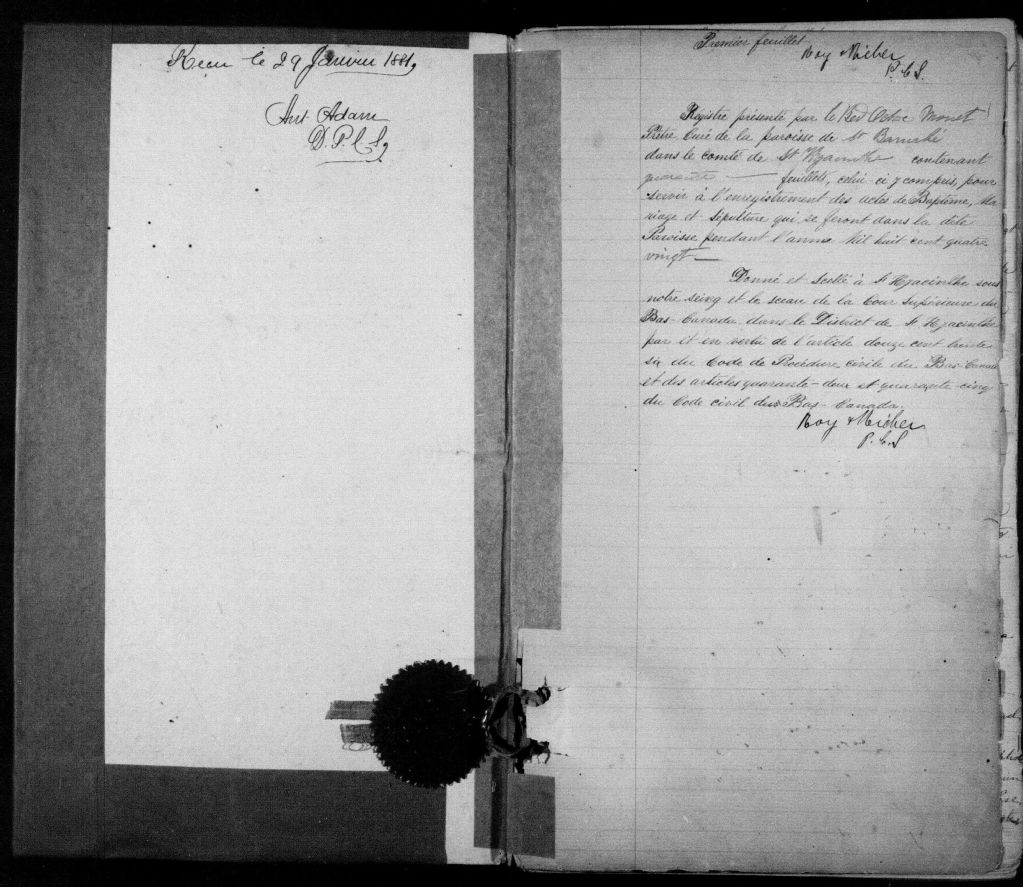 Reçu le 29 Janvier 1881,
Ant Adam
D. P. C. S,
Premier feuillet
Roy & Michel
P. C. S.
Registre présenté par le Rev Octve Monet
Prêtre Curé de la paroisse de St Barnabé
dans le comté de St Hyacinthe contenant
quarante — feuillets, celui-ci y compris, pour
servir à l'enregistrement des actes de Baptême, Ma
riage et Sépulture qui se feront dans la dite
Paroisse pendant l'année Mil huit cent quatre
vingt —
Donné et Scellé à St Hyacinthe sous
notre seing et le sceau de la Cour Supérieure du
Bas-Canada dans le District de St Hyacinthe
par et en vertu de l'article douze cent trente
six du Code de Procédure civile du Bas-Canada
et des articles quarante-deux et quarante-cinq
du Code civil du Bas-Canada.
Roy & Michel
P. C. S